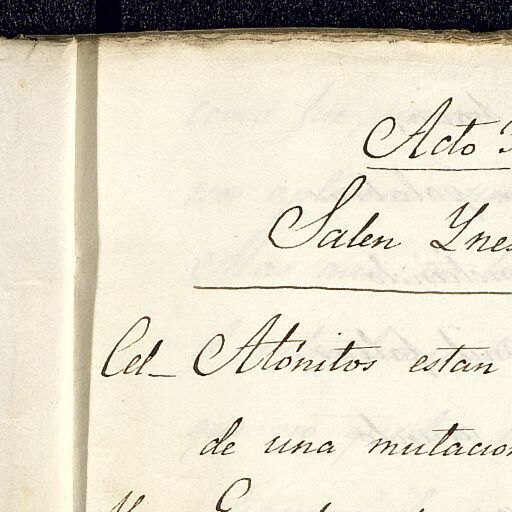 Acto
Salen Ynes
Cel_ Atónitos estan
de una mutacion